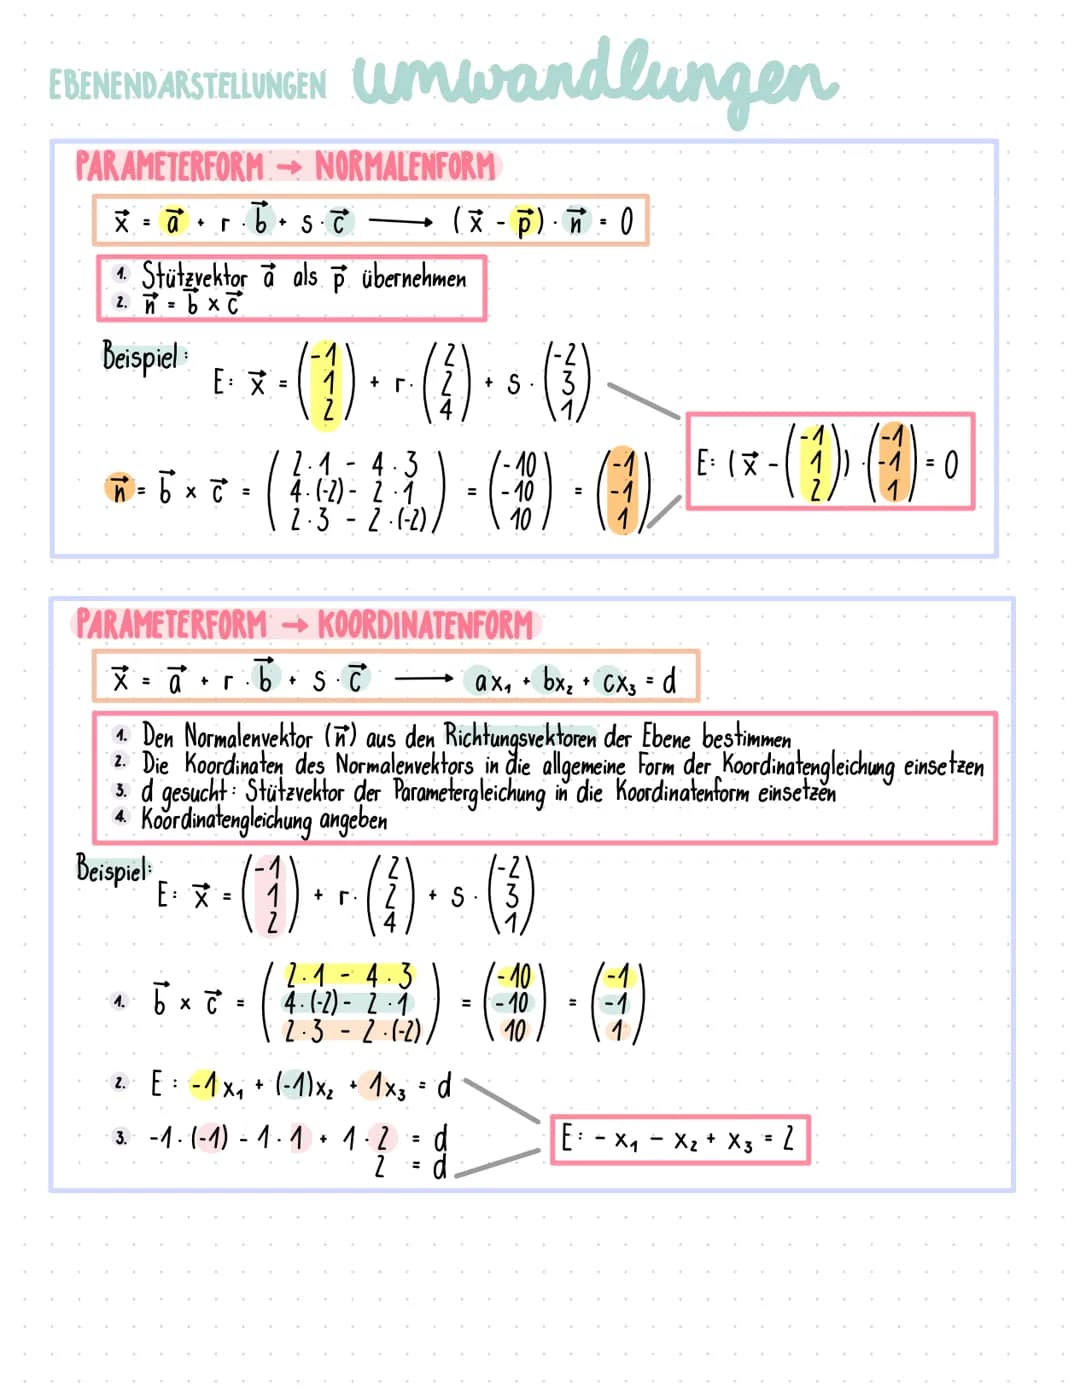 EBENENDARSTELLUNGEN umwandlungen
PARAMETERFORM → NORMALENFORM
x⃗ = a⃗ + r · b⃗ + s · c⃗ ⟶ (x⃗ - p⃗) · n⃗ = 0
1. Stützvektor a⃗ als p⃗ übernehmen
2. n⃗ = b⃗ x c⃗
Beispiel:
E: x⃗ = (-1 1 2) + r · (2 2 4) + s · (-2 3 1)
n⃗ = b⃗ x c⃗ = (2·1 - 4·3 4·(-2) - 2·1 2·3 - 2·(-2)) = (-10 -10 10) = (-1 -1 1)
E: (x⃗ - (-1 1 2)) · (-1 -1 1) = 0
PARAMETERFORM → KOORDINATENFORM
x⃗ = a⃗ + r · b⃗ + s · c⃗ ⟶ ax₁ + bx₂ + cx₃ = d
1. Den Normalenvektor (n⃗) aus den Richtungsvektoren der Ebene bestimmen
2. Die Koordinaten des Normalenvektors in die allgemeine Form der Koordinatengleichung einsetzen
3. d gesucht: Stützvektor der Parametergleichung in die Koordinatenform einsetzen
4. Koordinatengleichung angeben
Beispiel:
E: x⃗ = (-1 1 2) + r · (2 2 4) + s · (-2 3 1)
1. b⃗ x c⃗ = (2·1 - 4·3 4·(-2) - 2·1 2·3 - 2·(-2)) = (-10 -10 10) = (-1 -1 1)
2. E: -1x₁ + (-1)x₂ + 1x₃ = d
3. -1·(-1) - 1·1 + 1·2 = d
2 = d
E: - x₁ - x₂ + x₃ = 2